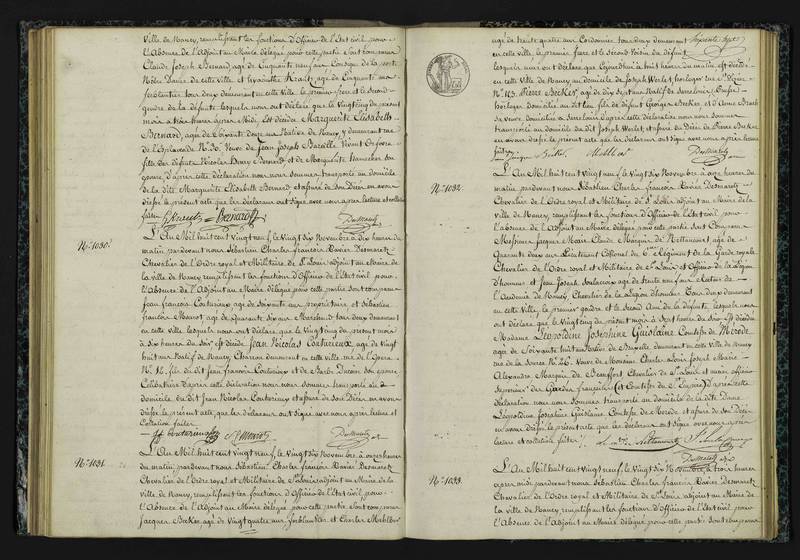 Ville de Nancy, remplissant les fonctions d'Officier de l'Etat civil, pour
l'Absence de l'Adjoint au Maire délégué pour cette partie sont comparus
Claude Joseph Bernard, agé de Cinquante neuf ans Consigne de la porte
Notre Dame de cette Ville et hyacinthe Krantz, agé de Cinquante ans
ferblantier tous deux demeurant en cette Ville, le premier frere et le second
gendre de la défunte, lesquels nous ont déclaré que le Vingt cinq du présent
mois à trois heures après Midi, est décédée Marguerite Elisabeth
Bernard, agée de Soixante douze ans Native de Nancy, y demeurant rue
de l'Esplanade N.° 30. Veuve de Jean Joseph Bazaille Vivant
fille des défunts Nicolas Henry Bernard et de Marguerite
d'après cette déclaration nous nous sommes transportés au domicile
de la dite Marguerite Elisabeth Bernard et assuré de son Décès en avons
dressé le présent acte que les déclarans ont Signé avec nous après lecture et collation
faites.
Krantz Bernard Desmaretz
N.° 1030.
L'An Mil huit cent Vingt neuf, le Vingt Six Novembre à dix heures du
matin pardevant nous Sébastien Charles françois Xavier Desmaretz
Chevalier de l'Ordre royal et Militaire de S.t Louis adjoint au Maire de
la ville de Nancy remplissant les fonctions d'Officier de l'Etat civil pour
l'Absence de l'Adjoint au Maire délégué pour cette partie sont comparus
jean françois Couturieux agé de Soixante ans propriétaire et Sébastien
françois Menort agé de Quarante Six ans Marchand tous deux demeurant
en cette ville lesquels nous ont déclaré que le Vingt cinq du présent mois
à dix heures du soir est décédé Jean Nicolas Couturieux, agé de Vingt
huit ans Natif de Nancy, Charron demeurant en cette ville rue de l'Opera
N.° 12. fils du dit jean françois Couturieux et de Barbe Ducom son épouse
Célibataire d'après cette déclaration nous nous sommes transportés au
domicile du dit Jean Nicolas Couturieux et assuré de son Décès en avons
dressé le présent acte, que les déclarans ont Signé avec nous après lecture et
Collation faites.
Couturieux Menort Desmaretz
N.° 1031.
L'An Mil huit cent Vingt neuf, le Vingt Six Novembre à onze heures
du matin pardevant nous Sébastien Charles françois Xavier Desmaretz
Chevalier de l'Ordre royal et Militaire de S.t Louis adjoint au Maire de la
ville de Nancy, remplissant les fonctions d'Officier de l'Etat civil, pour
l'Absence de l'Adjoint au Maire délégué pour cette partie sont comparus
Jacques Becker, agé de Vingt quatre ans ferblantier et Charles
agé de trente quatre ans Cordonnier tous deux demeurant
en cette ville, le premier frere et le Second Voisin du défunt
lesquels nous ont déclaré que Cejourd'hui à huit heures du matin est décédé
en cette ville de Nancy au domicile de Joseph Werlet, horloger rue S.t Dizier
N.° 143. Pierre Becker, agé de dix sept ans Natif de Sarrelouis
horloger domicilié au dit lieu fils de défunt Georges Becker, et d'Anne
Sa veuve domiciliée à Sarrelouis d'après cette déclaration nous nous sommes
transportés au domicile du dit Joseph Werlet, et assuré du Décès de Pierre Becker
en avons dressé le présent acte que les déclarans ont Signé avec nous après lecture
Becker Desmaretz
N.° 1032.
L'An Mil huit cent Vingt neuf, le Vingt Six Novembre à onze heures du
matin, pardevant nous Sébastien Charles françois Xavier Desmaretz
Chevalier de l'Ordre royal et Militaire de S.t Louis adjoint au Maire de la
ville de Nancy, remplissant les fonctions d'Officier de l'Etat civil, pour
l'absence de l'Adjoint au Maire délégué pour cette partie Sont Comparus
Messieurs Jacques Marie Claude Marquis de Nettancourt agé de
Quarante deux ans Lieutenant Colonel du Régiment de la Garde royale
Chevalier de l'Ordre royal et Militaire de S.t Louis et Officier de la Légion
d'honneur et Jean Joseph Soulacroix agé de trente neuf ans Recteur de
l'Académie de Nancy, Chevalier de la Légion d'honneur tous deux demeurant
en cette Ville, le premier gendre et le Second Ami de la défunte, lesquels nous
ont déclaré que le Vingt cinq du présent mois à Sept heures du Soir est décédée
Madame Léopoldine Josephine Guislaine Comtesse de Merode
agée de Soixante huit ans Native de Bruxelles demeurant en cette Ville de Nancy
rue de la Source N.° 26. Veuve de Monsieur Charles Louis Joseph Marie
Alexandre Marquis de Beauffort Chevalier de S.t Louis et ancien officier
Supérieur des Gardes françaises d'après cette
déclaration nous nous sommes transportés au domicile de la dite Dame
Léopoldine Josephine Guislaine Comtesse de Merode et assuré de Son Décès
en avons dressé le présent acte que les déclarans ont Signé avec nous après
lecture et collation faites.
Nettancourt Desmaretz
N.° 1033.
L'An Mil huit cent Vingt neuf, le Vingt Six Novembre, à trois heures
après midi pardevant nous Sébastien Charles françois Xavier Desmaretz
Chevalier de l'Ordre royal et Militaire de S.t Louis, adjoint au Maire de la
ville de Nancy, remplissant les fonctions d'Officier de l'Etat civil pour
l'Absence de l'Adjoint au Maire délégué pour cette partie Sont Comparus